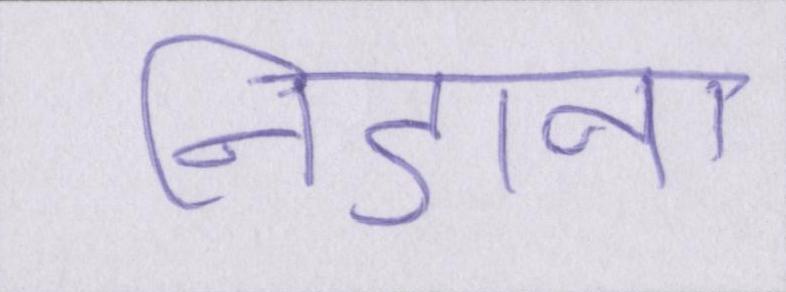 निडाना